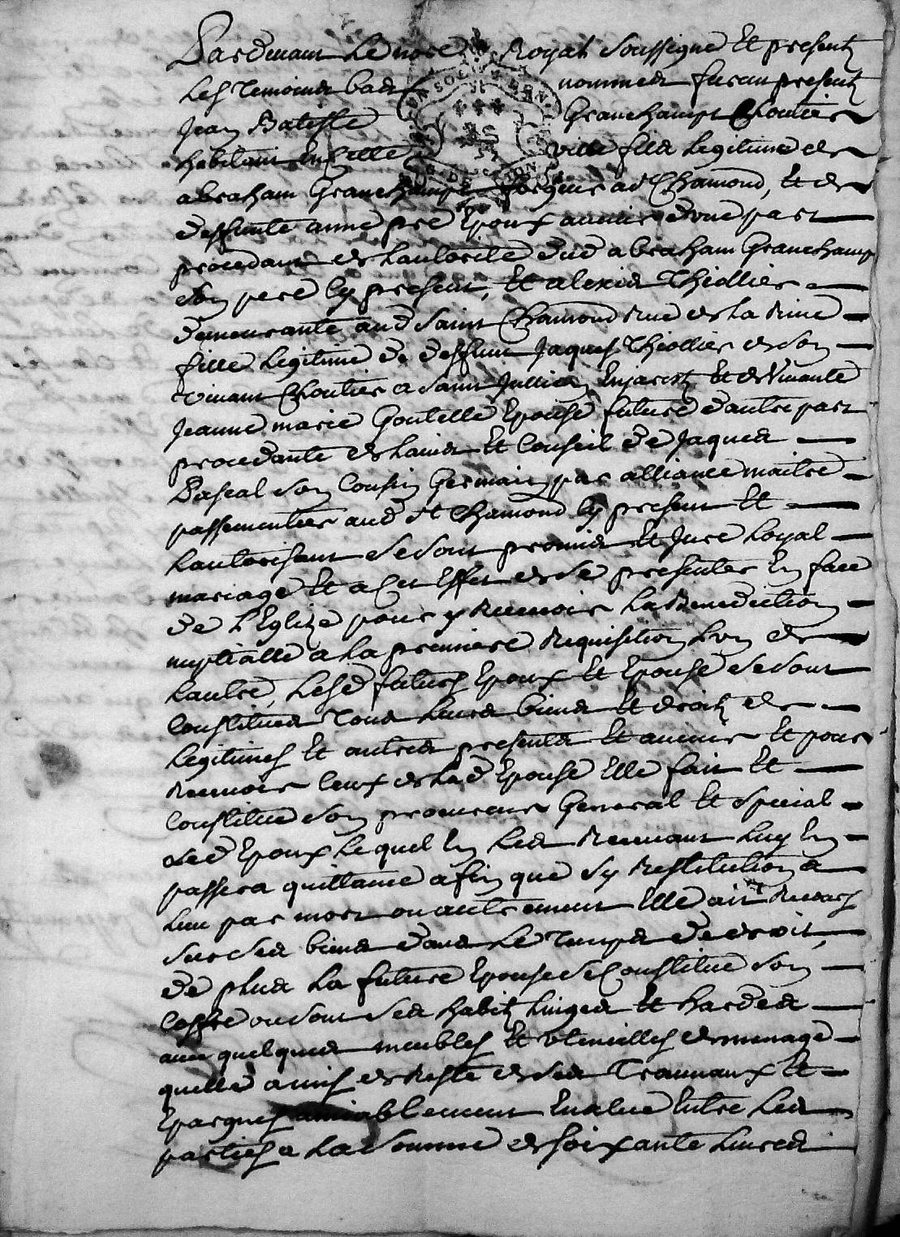 Pardevant le no.re Royal soussigné et presentz
les temoins bas nommés furent presentz
Jean Batiste Granchamp Cloutier
habitant en cette ville fils legitime de
abraham Granchamp aud Chamond, et de
deffunte anne Epoux avenir d'une part
procedant de l'autorité dud abraham Granchamp
son pere Cy present, et alexis Thiollier
demeurante aud Saint Chamond Rue de la Rive
fille legitime de deffunt Jaques Thiollier de son
vivant Cloutier a Saint Jullien en Jarest et de vivante
Jeanne marie Goutelle Epouse future d'autre part
procedante de l'avis et Conseil de Jaques
Pascal son Cousin Germain par alliance maitre
passementier aud St Chamond Cy present et
l'autorisant se sont promis et Juré Loyal
mariage et a Cet Effet de se presenter En face
de L'Eglize pour y Recevoir La Benediction
nuptialle a La premiere Requisition L'un de
L'autre, Lesd futurs Epoux et Epouse se sont
Constitués Tous Leurs biens et droitz de
Legitimes et autres presents et avenir et pour
Recevoir Ceux de Lad Epouse Elle fait et
Constitue son procureur General et special
Led Epoux Lequel En Les Recevant Luy En
passera quittance afin que sy Restitution a
Lieu par mort ou autrement Elle ait Recours
sur ses biens dans Le Temps de droit,
de plus La future Epouse se Constitue son
Coffre ou sont ses habitz Linges et hardes
avec quelques meubles et utencilles de menage
quelle a mis de Reste de ses Travaux et
Eparques amiablement Evalué Entre Les
parties a La somme de soixante Livres